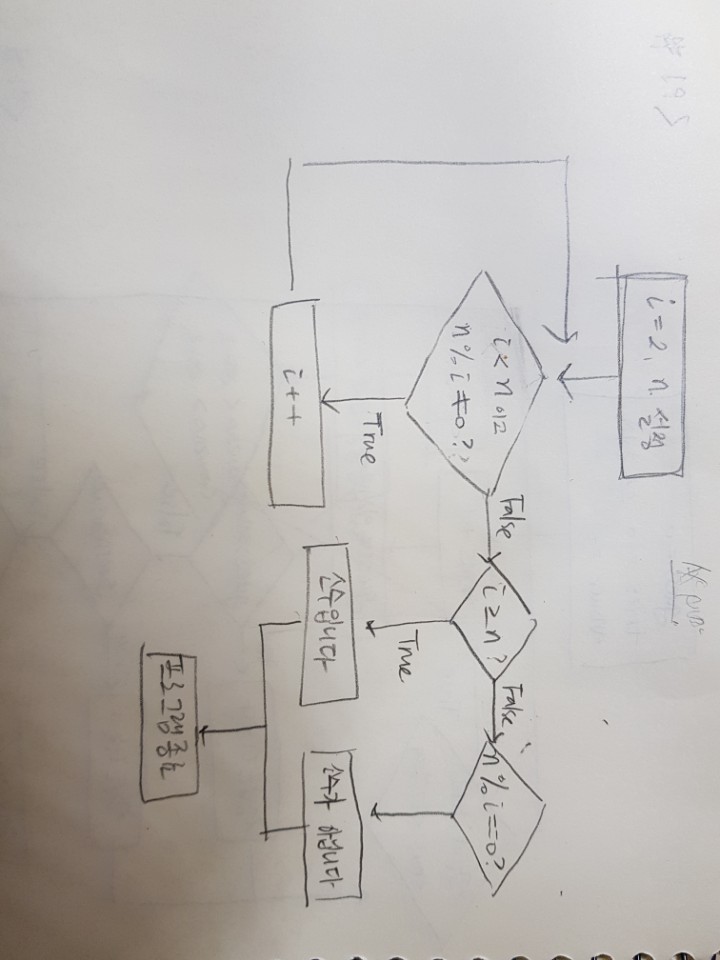 i = 2, n 설정
i < n 이고
n % i ≠ 0 ?
True
i++
False
i ≥ n ?
True
소수입니다
False
n % i == 0 ?
소수가 아닙니다
프로그램 종료